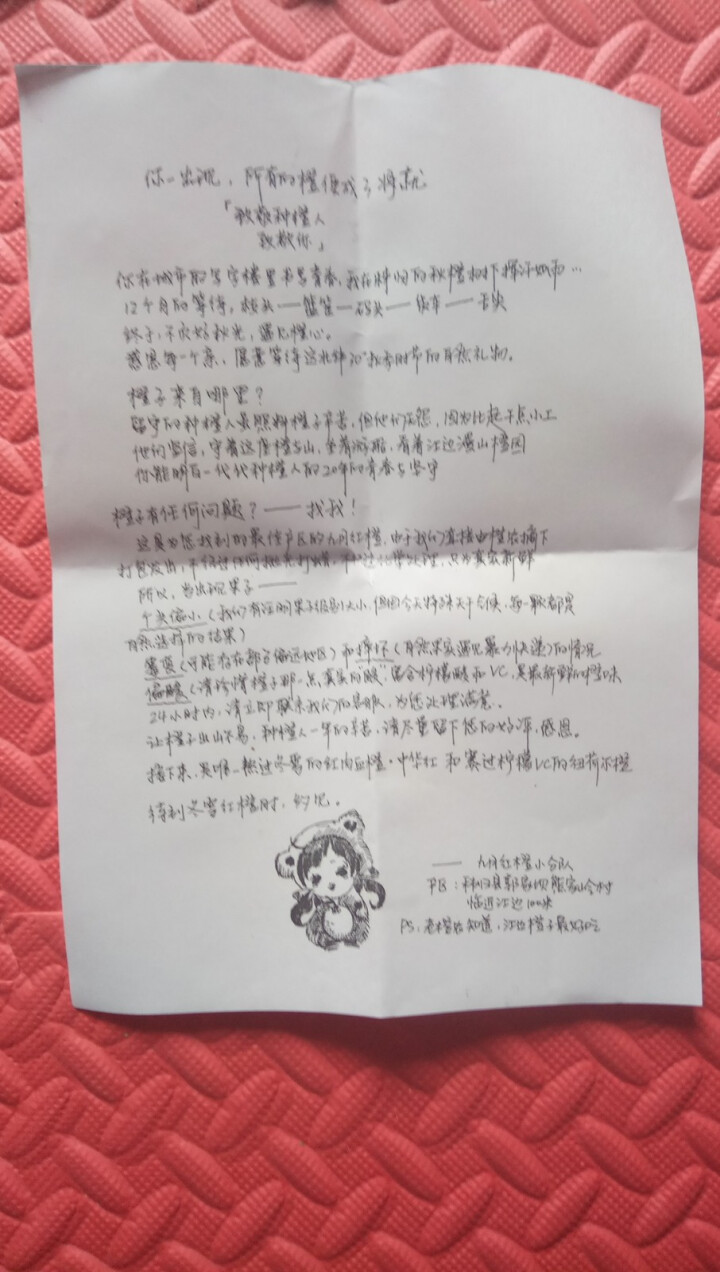 你一出现，所有的橙便成了将就
「致敬种橙人
致敬你」
你在城市的写字楼里书写青春，我在秭归的秋橙树下挥汗如雨…
12个月的等待，枝头——篮筐——码头——货车——舌尖
终于，不负好秋光，遇见橙心。
感恩每一个亲，愿意等待这北纬30°秋季时节的自然礼物。
橙子来自哪里？
留守的种橙人虽照料橙子辛苦，但他们无怨，因为比起干点小工
他们坚信，守着这座橙与山，坐着游船，看着江边漫山橙园
你能明白一代代种橙人的20年的青春与坚守
橙子有任何问题？——找我！
这是为您找到的最佳产区的九月红橙，由于我们直接由橙农摘下
打包发出，不经过任何抛光打蜡，不经过化学处理，只为真实新鲜
所以，当出现果子——
个头偏小（我们有注明果子级别大小，但因今天特殊天干气候，每一颗都是
自然选择的结果）
霉变（可能存在部分偏远地区）和摔坏（自然果实遇见暴力快递）的情况
偏酸（请珍惜橙子那一点真实的"酸"，富含柠檬酸和VC，是最新鲜的味
24小时内，请立即联系我们的客服，为您处理满意。
让橙子出山不易，种橙人一年的辛苦，请尽量留下您的好评，感恩。
接下来，是唯一熬过冬雪的红肉血橙·中华红 和赛过柠檬VC的纽荷尔橙
待到冬雪红橙时，约见。
——九月红橙小分队
PB：秭归县郭家坝熊家岭村
临近江边100米
PS：老橙农知道，江边橙子最好吃